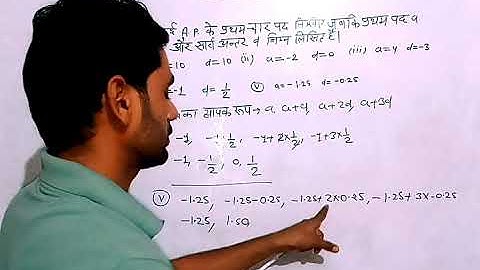 A.P. के प्रथम चार पद जबकि प्रथम पद a
और सार्व अन्तर d निम्न लिखित है।
=10 d=10 (ii) a=-2 d=0 (iii) a=4 d=-3
=-1 d=1/2 (v) a=-1.25 d=-0.25
का व्यापक रूप→ a, a+d, a+2d, a+3d
-1, -1+1/2, -1+2×1/2, -1+3×1/2
-1, -1/2, 0, 1/2
(v) -1.25, -1.25-0.25, -1.25+2×0.25, -1.25+3×-0.25
-1.25, 1.50